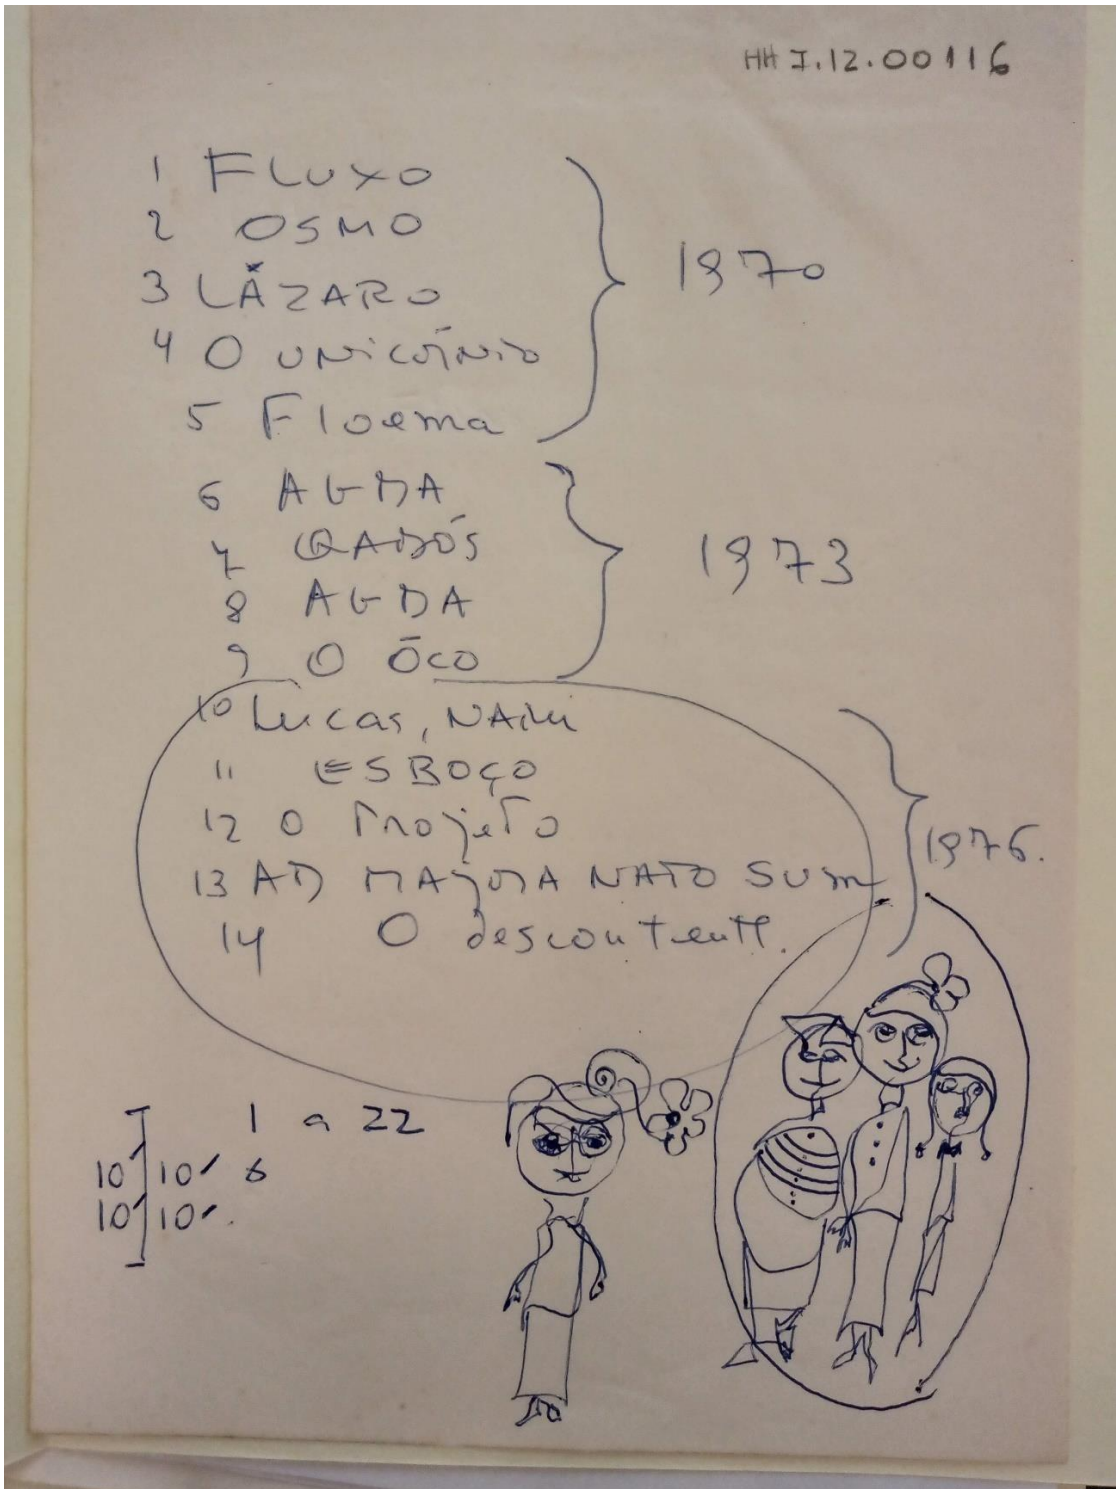 HH I.12.00116
1 FLUXO
2 OSMO
3 LÁZARO
4 O UNICÓRNIO
5 Floema
1970
6 AGDA
7 QADÓS
8 AGDA
9 O ÔCO
1973
10 Lucas, NAIM
11 ESBOÇO
12 O Projeto
13 AD MAJORA NATO SUM
14 O descontente.
1976.
1 a 22
10 10 6
10 10